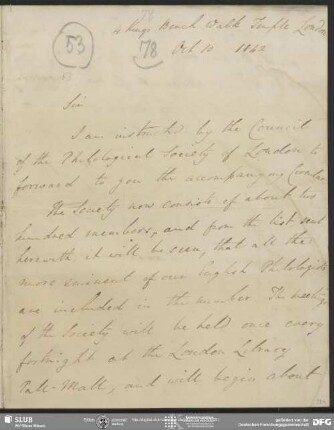 4 Kings Bench Walk Temple London
53
78
Oct 10 1842
53
Sir
I am instructed by the Council
of the Philological Society of London to
forward to you the accompanying Circular
The Society now consists of about two
hundred members, and from the list sent
herewith it will be seen, that all the
more eminent of our English Philologists
are included in the number. The meetings
of the Society will be held once every
fortnight at the London Library
Pall-Mall, and will begin about
SLUB
Wir führen Wissen.
DFG